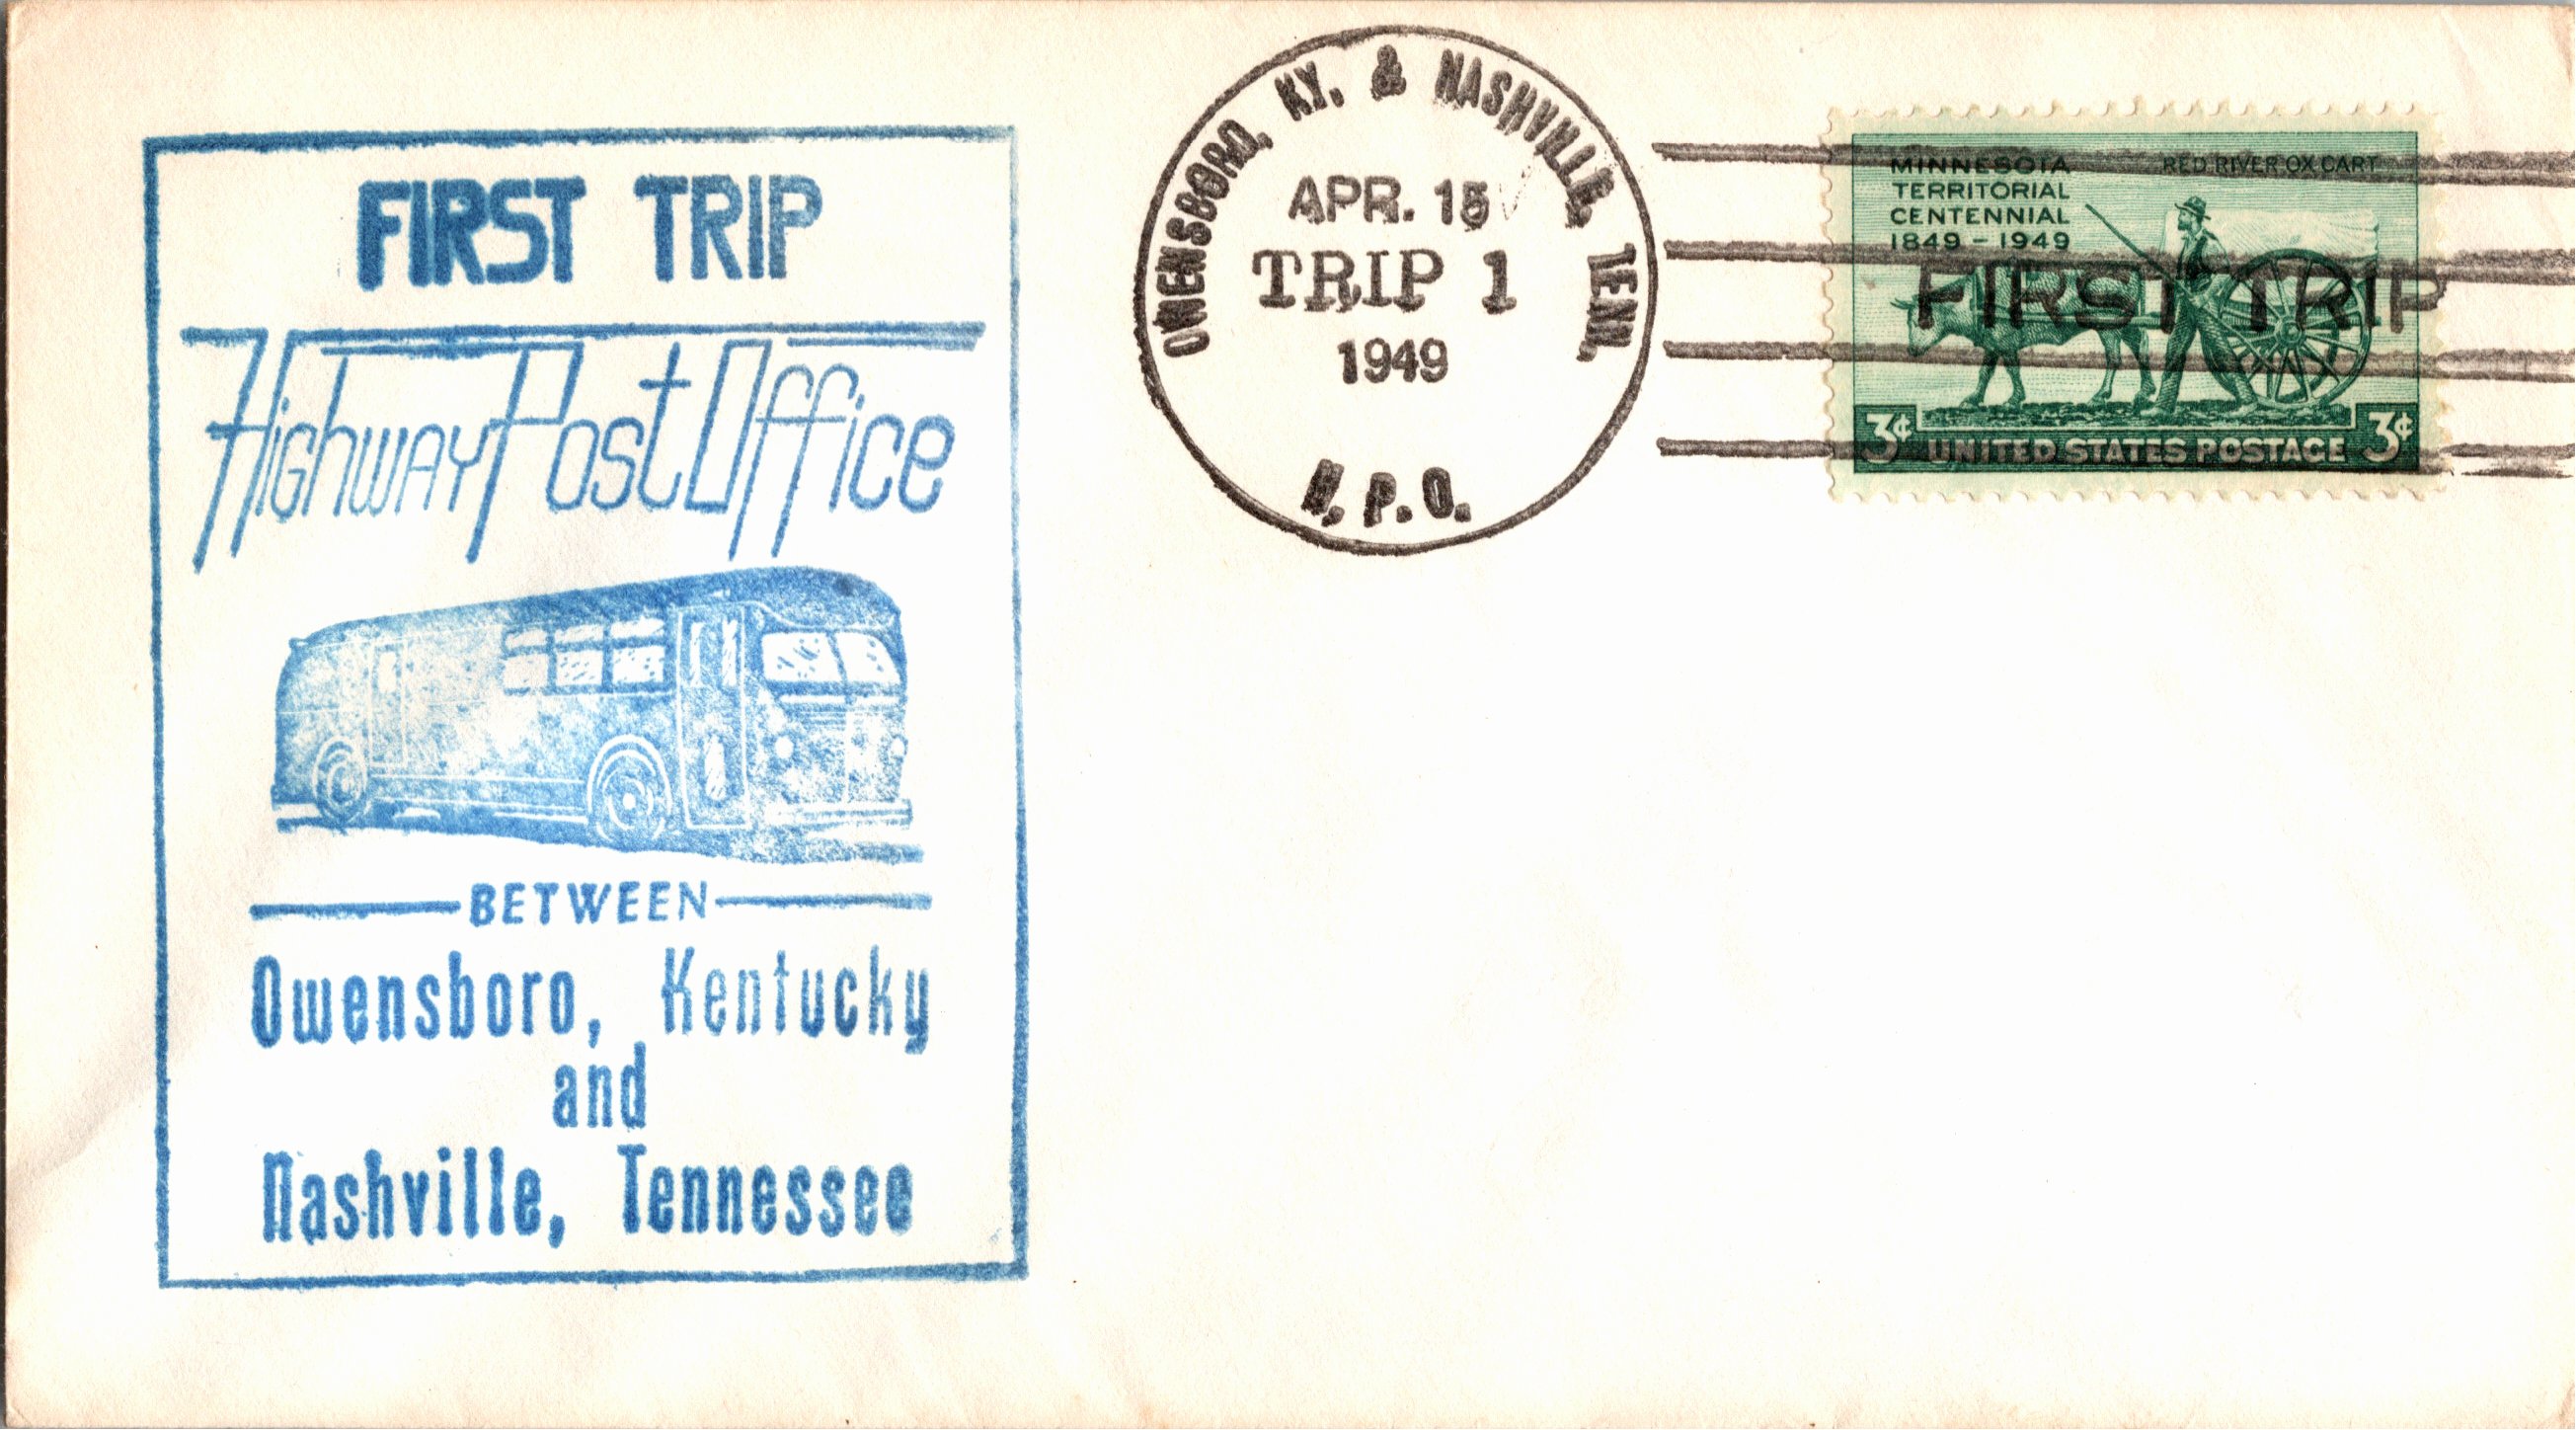 FIRST TRIP
Highway Post Office
BETWEEN
Owensboro, Kentucky
and
Nashville, Tennessee
OWENSBORO, KY. & NASHVILLE, TENN.
APR. 15
TRIP 1
1949
H.P.O.
MINNESOTA
TERRITORIAL
CENTENNIAL
1849 - 1949
RED RIVER OX CART
FIRST TRIP
3¢ UNITED STATES POSTAGE 3¢